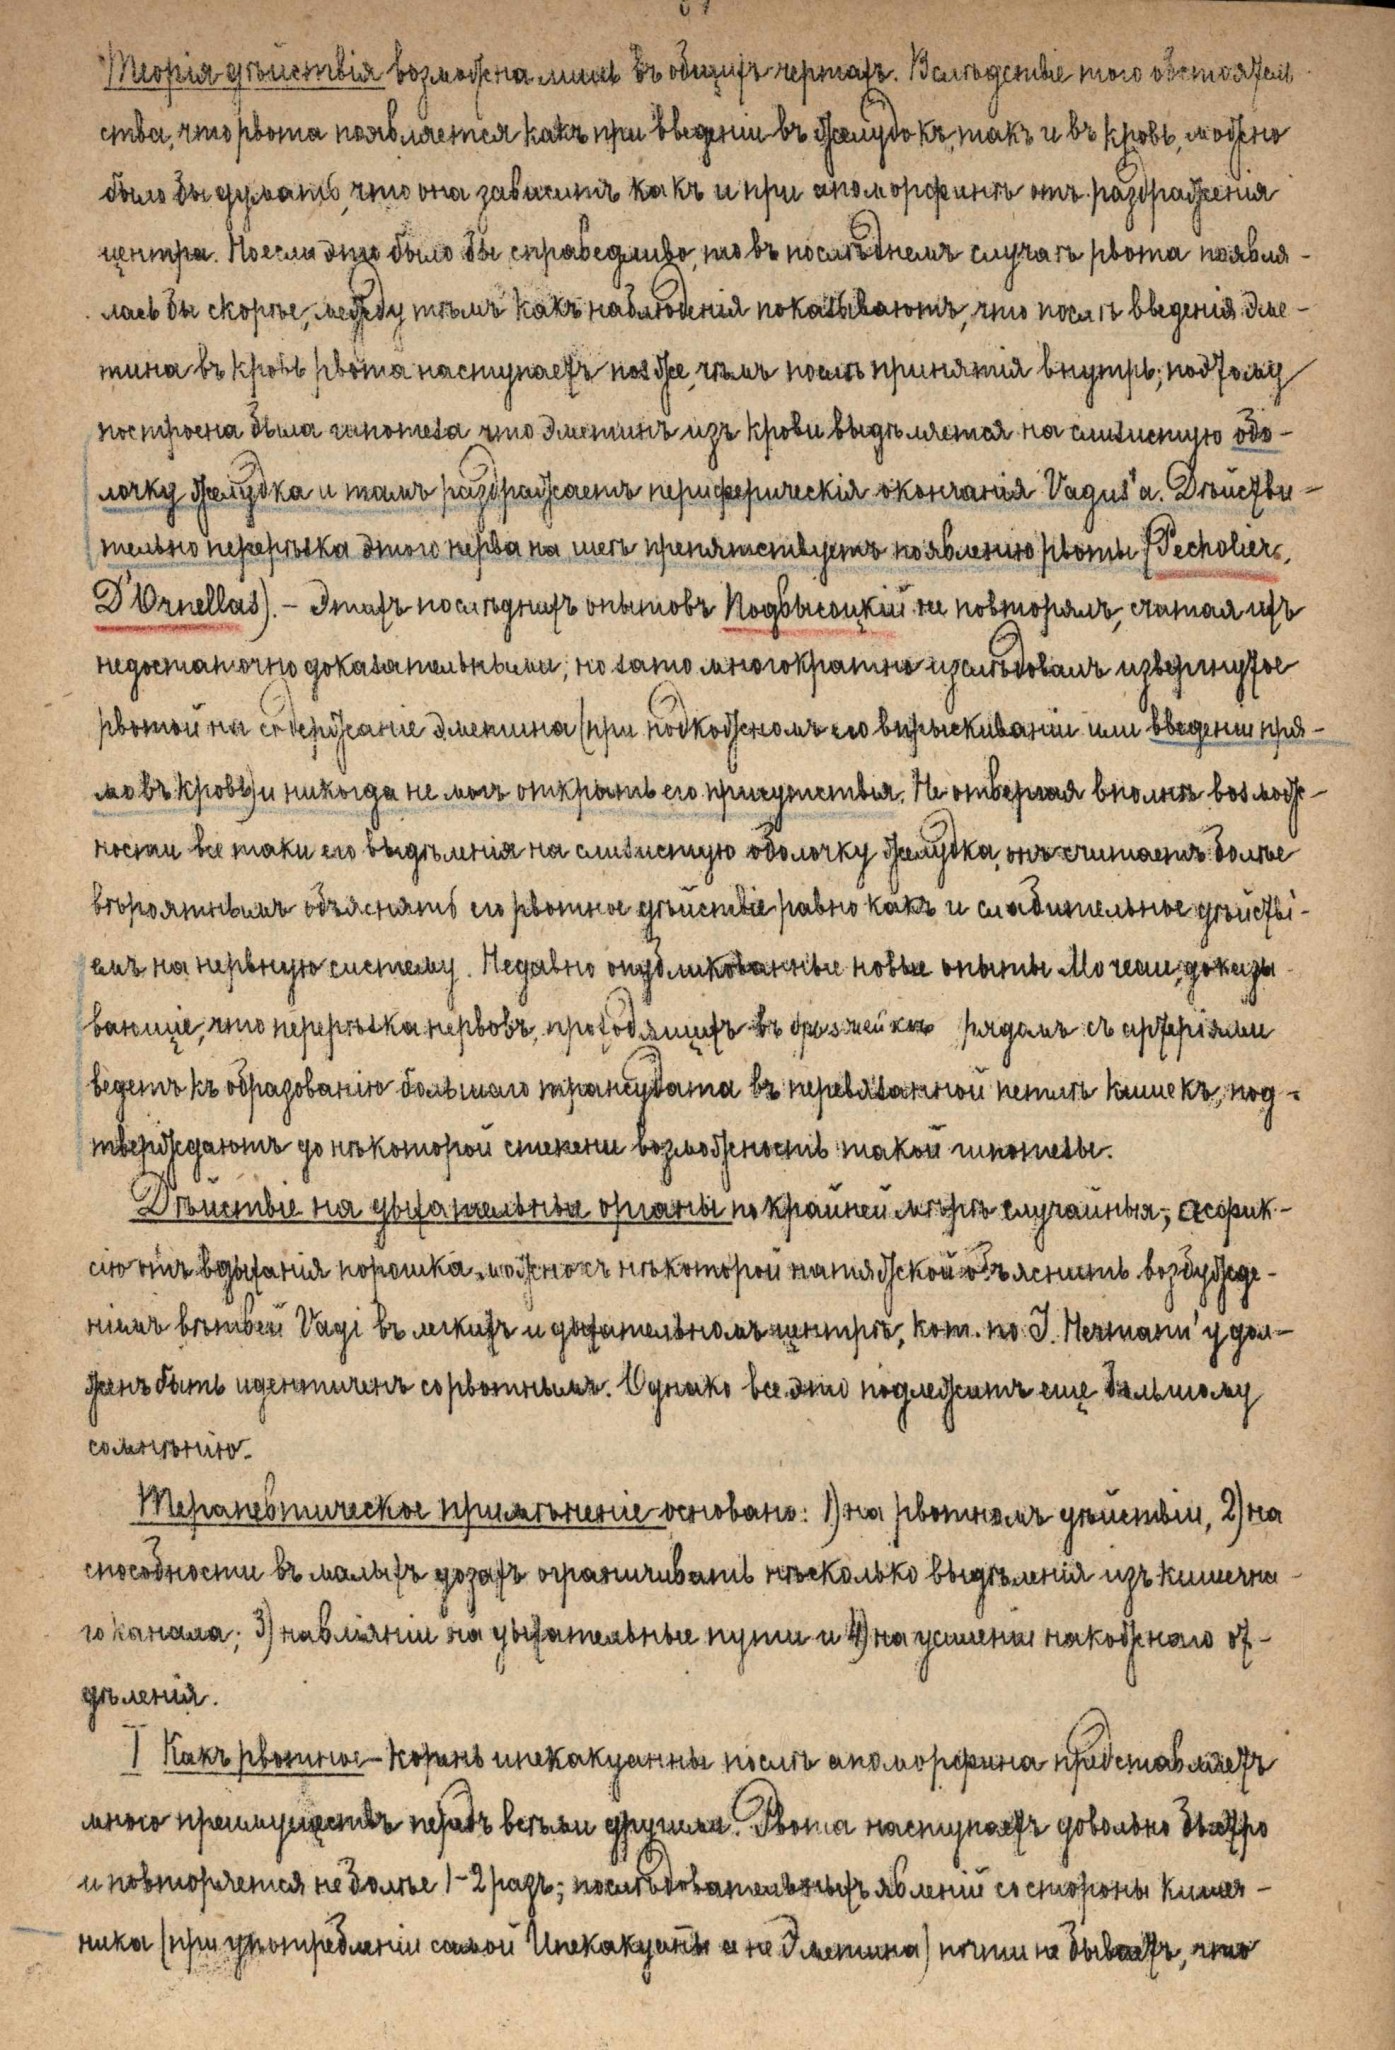 Теорія дѣйствія возможна лишь въ общихъ чертахъ. Вслѣдствіе того обстоятель
ства, что рвота появляется какъ при введеніи въ желудокъ, такъ и въ кровь, можно
было бы думать, что она зависитъ какъ и при апоморфинѣ отъ раздраженія
центра. Но если это было бы справедливо, то въ послѣднемъ случаѣ рвота появля-
лась бы скорѣе, между тѣмъ какъ наблюденія показываютъ, что послѣ введенія эме-
тина въ кровь рвота наступаетъ позже, чѣмъ послѣ принятія внутрь; поэтому
построена была гипотеза что эметинъ изъ крови выдѣляется на слизистую обо-
лочку желудка и тамъ раздражаетъ периферическія окончанія Vagus'а. Дѣйстви-
тельно перерѣзка этого нерва на шеѣ препятствуетъ появленію рвоты (Pecholier,
D'Ornellas). - Этихъ послѣднихъ опытовъ Подвысоцкій не повторялъ, считая ихъ
недостаточно доказательными, но зато многократно изслѣдовалъ извергнутое
рвотой на содержаніе эметина (при подкожномъ его впрыскиваніи или введеніи пря-
мо въ кровь) и никогда не могъ открыть его присутствія. Не отвергая вполнѣ возмож-
ности все таки его выдѣленія на слизистую оболочку желудка, онъ считаетъ болѣе
вѣроятнымъ объяснять его рвотное дѣйствіе равно какъ и слабительное дѣйстві-
емъ на нервную систему. Недавно опубликованные новые опыты Мореаи, доказы
вающіе, что перерѣзка нервовъ, проходящихъ въ брызжейкѣ рядомъ съ артеріями
ведетъ къ образованію большаго трансудата въ перевязанной петлѣ кишекъ, под-
тверждаютъ до нѣкоторой степени возможность такой гипотезы.
Дѣйствіе на дыхательные органы по крайней мѣрѣ случайныя; асфик-
сію отъ вдыханія порошка можно съ нѣкоторой натяжкой объяснить возбужде-
ніемъ вѣтвей Vagi въ легкихъ и дыхательномъ центрѣ, кот. по J. Hermann'у дол-
женъ быть идентиченъ со рвотнымъ. Однако все это подлежитъ еще большому
сомнѣнію.
Терапевтическое примѣненіе основано: 1) на рвотномъ дѣйствіи, 2) на
способности въ малыхъ дозахъ ограничивать нѣсколько выдѣленія изъ кишечна-
го канала; 3) на вліяніи на дыхательные пути и 4) на усиленіи накожнаго от-
дѣленія.
I Какъ рвотное - корень ипекакуанны послѣ апоморфина представляетъ
много преимуществъ передъ всѣми другими. Рвота наступаетъ довольно быстро
и повторяется не болѣе 1-2 разъ; послѣдовательныхъ явленій со стороны кишеч-
ника (при употребленіи самой Ипекакуаны а не Эметина) почти не бываетъ, что